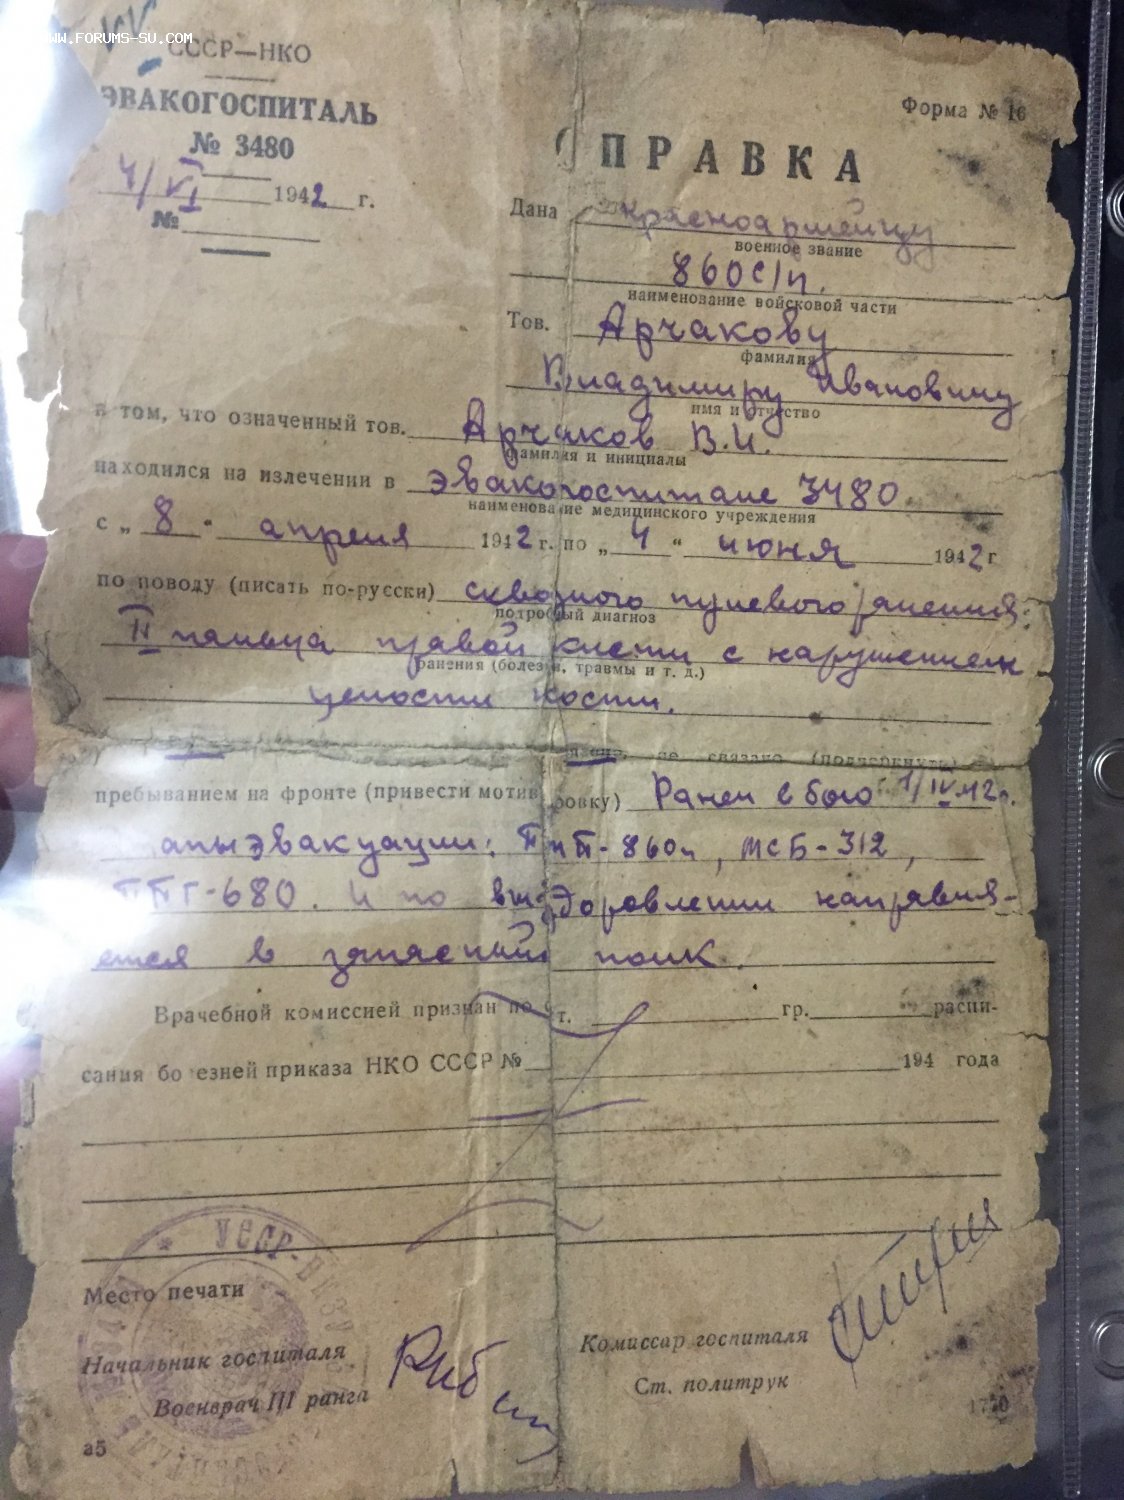 WWW.FORUMS-SU.COM
СССР—НКО
ЭВАКОГОСПИТАЛЬ
№ 3480
4/VI 1942 г.
№
Форма № 16
СПРАВКА
Дана красноармейцу
военное звание
860 с/п.
наименование войсковой части
Тов. Арчакову
фамилия
Владимиру Ивановичу
имя и отчество
в том, что означенный тов. Арчаков В.И.
фамилия и инициалы
находился на излечении в эвакогоспитале 3480
наименование медицинского учреждения
с „ 8 " апреля 1942 г. по „ 4 " июня 1942 г
по поводу (писать по-русски) сквозного пулевого ранения:
подробный диагноз
II пальца правой кисти с нарушением
ранения (болезни, травмы и т. д.)
целости кости.
не связано (подчеркнуть)
пребыванием на фронте (привести мотивировку) Ранен в бою 1/IV 42 г.
апы эвакуации: 860 п, МСБ-312,
ППГ-680. И по выздоровлении направля-
ется в запасной полк.
Врачебной комиссией признан по ст. гр. распи-
сания бо езней приказа НКО СССР № 194 года
УССР
Место печати
Начальник госпиталя
Военврач III ранга
Комиссар госпиталя
Ст. политрук
а5